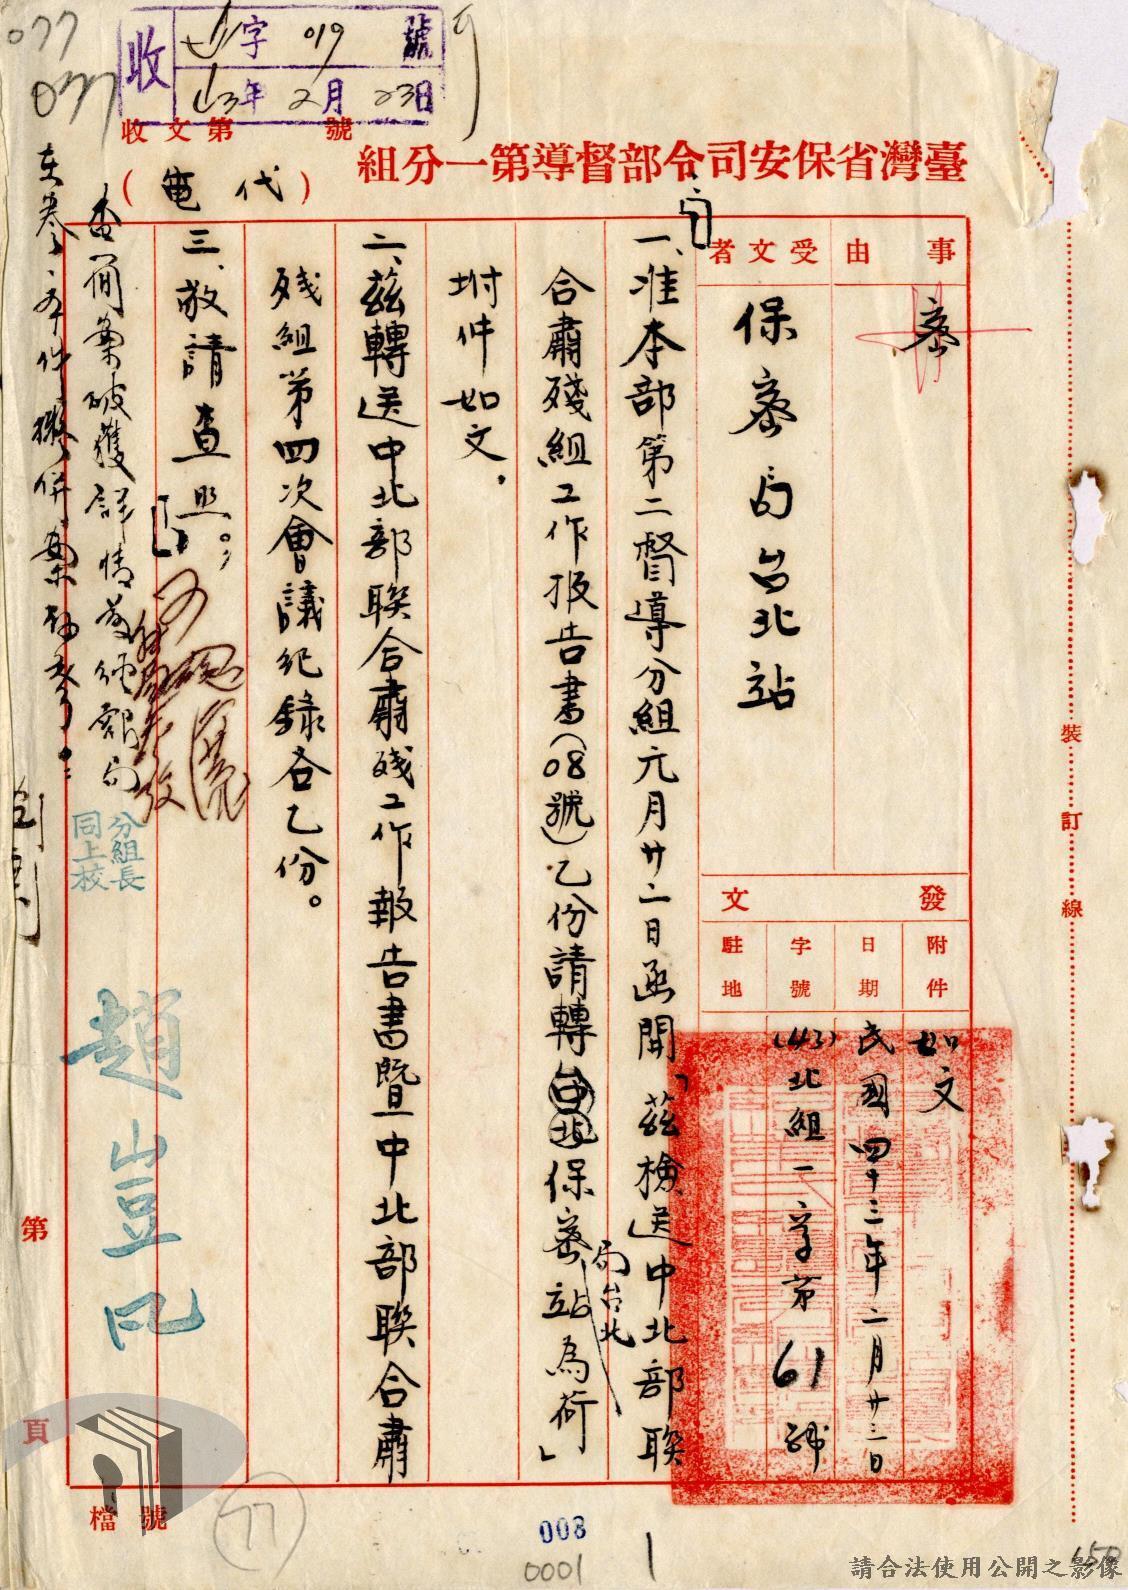 077
037
收
字 019 號
43年 2月 23日
收文第 號
臺灣省保安司令部督導第一分組
(代電)
事由
密
受文者
保密局台北站
發文
附件
如文
日期
民國四十三年二月廿三日
字號
(43)北組一字第61號
駐地
一、准本部第二督導分組元月廿二日函開「茲檢送中北部聯
合肅殘組工作报告書(08號)乙份請轉台北保密站為荷」
局台北
坿件如文。
二、茲轉送中北部聯合肅残工作報告書暨中北部聯合肅
残組第四次會議紀錄各乙份。
三、敬請查照。
分組長
同上校
趙山豆凡
查簡案破獲詳情
在卷
裝訂線
第
頁
檔號
77
008
0001
1
150
請合法使用公開之影像